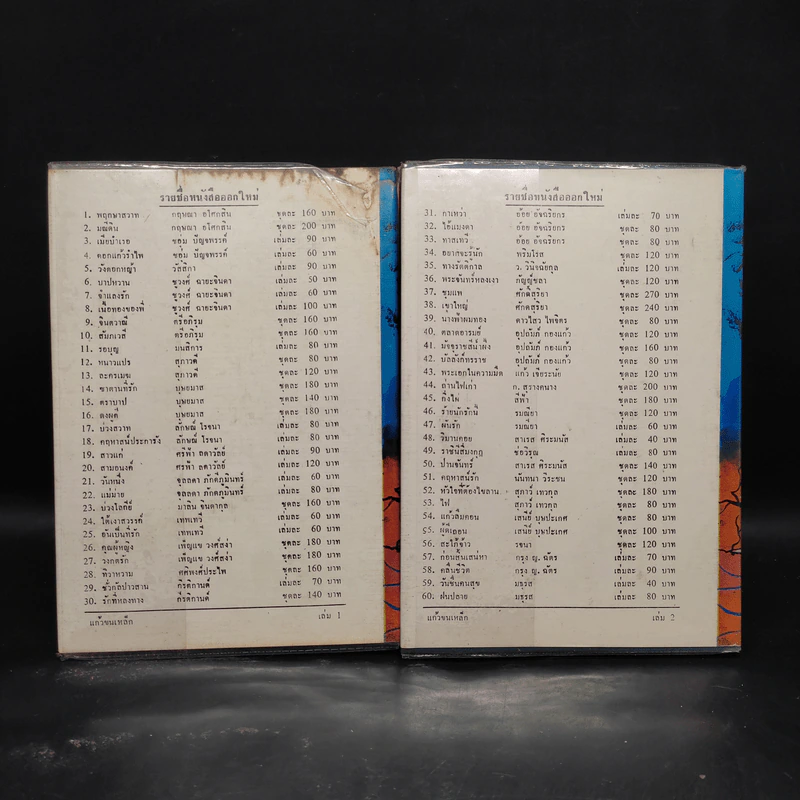 รายชื่อหนังสือออกใหม่
1. พฤกษาสวาท กฤษณา อโศกสิน ชุดละ 160 บาท
2. มณีดิน กฤษณา อโศกสิน ชุดละ 200 บาท
3. เมียบำเรอ ชอุ่ม ปัญจพรรค์ เล่มละ 90 บาท
4. ดอกแก้วรำไพ ชอุ่ม ปัญจพรรค์ เล่มละ 60 บาท
5. วังดอกหญ้า วัสสิกา เล่มละ 90 บาท
6. บาปหวาน ชูวงศ์ ฉายะจินดา เล่มละ 50 บาท
7. จำแลงรัก ชูวงศ์ ฉายะจินดา เล่มละ 60 บาท
8. เนื้อทองของพี่ ชูวงศ์ ฉายะจินดา เล่มละ 100 บาท
9. จินตวาณี ตรีอภิรุม ชุดละ 160 บาท
10. สัมภเวสี ตรีอภิรุม ชุดละ 160 บาท
11. รอบุญ มนสิการ เล่มละ 80 บาท
12. หนาวแปร สุภาวดี ชุดละ 80 บาท
13. ละครเมฆ สุภาวดี ชุดละ 120 บาท
14. ซาตานที่รัก บุษยมาส ชุดละ 180 บาท
15. ตราบาป บุษยมาส ชุดละ 140 บาท
16. ดงผู้ดี บุษยมาส ชุดละ 180 บาท
17. บ่วงสวาท ลักษณ์ โรจนา เล่มละ 60 บาท
18. คฤหาสน์ประการัง ลักษณ์ โรจนา เล่มละ 80 บาท
19. สาวแก่ ศรีฟ้า ลดาวัลย์ เล่มละ 90 บาท
20. สามอนงค์ ศรีฟ้า ลดาวัลย์ เล่มละ 120 บาท
21. วันหนึ่ง ชุลลดา ภักดีภูมินทร์ เล่มละ 60 บาท
22. แม่ม่าย ชุลลดา ภักดีภูมินทร์ เล่มละ 80 บาท
23. บ่วงโลกีย์ มาลิน จินตากุล ชุดละ 160 บาท
24. ใต้เงาสวรรค์ เทพเทวี เล่มละ 60 บาท
25. อันเป็นที่รัก เทพเทวี เล่มละ 60 บาท
26. คุณผู้หญิง เพ็ญแข วงศ์สง่า ชุดละ 180 บาท
27. วงกตรัก เพ็ญแข วงศ์สง่า ชุดละ 180 บาท
28. ทิวาหวาม ศศิพงศ์ประไพ ชุดละ 160 บาท
29. ชั่วกัลปาวสาน กีรติกานต์ เล่มละ 70 บาท
30. รักที่หลงทาง กีรติกานต์ ชุดละ 140 บาท
แก้วขนเหล็ก เล่ม 1
รายชื่อหนังสือออกใหม่
31. กาเหว่า อ้อย อัจฉริยกร เล่มละ 70 บาท
32. ไอ้แมงดา อ้อย อัจฉริยกร ชุดละ 80 บาท
33. ทาสเทวี อ้อย อัจฉริยกร ชุดละ 80 บาท
34. อยากจะรู้นัก พริมโรส ชุดละ 120 บาท
35. ทางรัตติกาล ว. วินิจฉัยกุล ชุดละ 120 บาท
36. พระจันทร์หลงเงา กัญญ์ชลา ชุดละ 120 บาท
37. ชุมแพ ศักดิ์สุริยา ชุดละ 270 บาท
38. เขาใหญ่ ศักดิ์สุริยา ชุดละ 240 บาท
39. นางฟ้าผมทอง ดาวไสว ไพจิตร ชุดละ 120 บาท
40. ตลาดอารมย์ อุปถัมภ์ กองแก้ว ชุดละ 120 บาท
41. มัจจุราชสีน้ำผึ้ง อุปถัมภ์ กองแก้ว ชุดละ 160 บาท
42. บัลลังก์ทรราช อุปถัมภ์ กองแก้ว ชุดละ 80 บาท
43. พระเอกในความมืด แก้ว เจียระนัย ชุดละ 120 บาท
44. ถ่านไฟเก่า ก. สุรางคนาง ชุดละ 200 บาท
45. กิ่งไผ่ สีฟ้า ชุดละ 180 บาท
46. ร้ายนักรักนี้ รมณียา ชุดละ 120 บาท
47. ผันรัก รมณียา เล่มละ 60 บาท
48. วิมานคอย สาเรส ศิระมนัส เล่มละ 40 บาท
49. ราชินีสีมงกุฎ ช่อวิรุณ เล่มละ 80 บาท
50. ม่านจันทร์ สาเรส ศิระมนัส ชุดละ 140 บาท
51. คฤหาสน์รัก นันทนา วีระชน ชุดละ 120 บาท
52. หัวใจที่ต้องไขลาน สุภาว์ เทวกุล ชุดละ 180 บาท
53. ไฟ สุภาว์ เทวกุล ชุดละ 80 บาท
54. แก้วลืมคอน เสนีย์ บุษปะเกศ ชุดละ 80 บาท
55. ผู้ดีเถื่อน เสนีย์ บุษปะเกศ ชุดละ 100 บาท
56. สะใภ้จ้าว รจนา ชุดละ 120 บาท
57. ก่อนสิ้นเสน่หา กรุง ญ. ฉัตร เล่มละ 70 บาท
58. คลื่นชีวิต กรุง ญ. ฉัตร เล่มละ 90 บาท
59. วันชื่นคืนสุข มธุรส เล่มละ 40 บาท
60. ฝนปลาย มธุรส เล่มละ 80 บาท
แก้วขนเหล็ก เล่ม 2